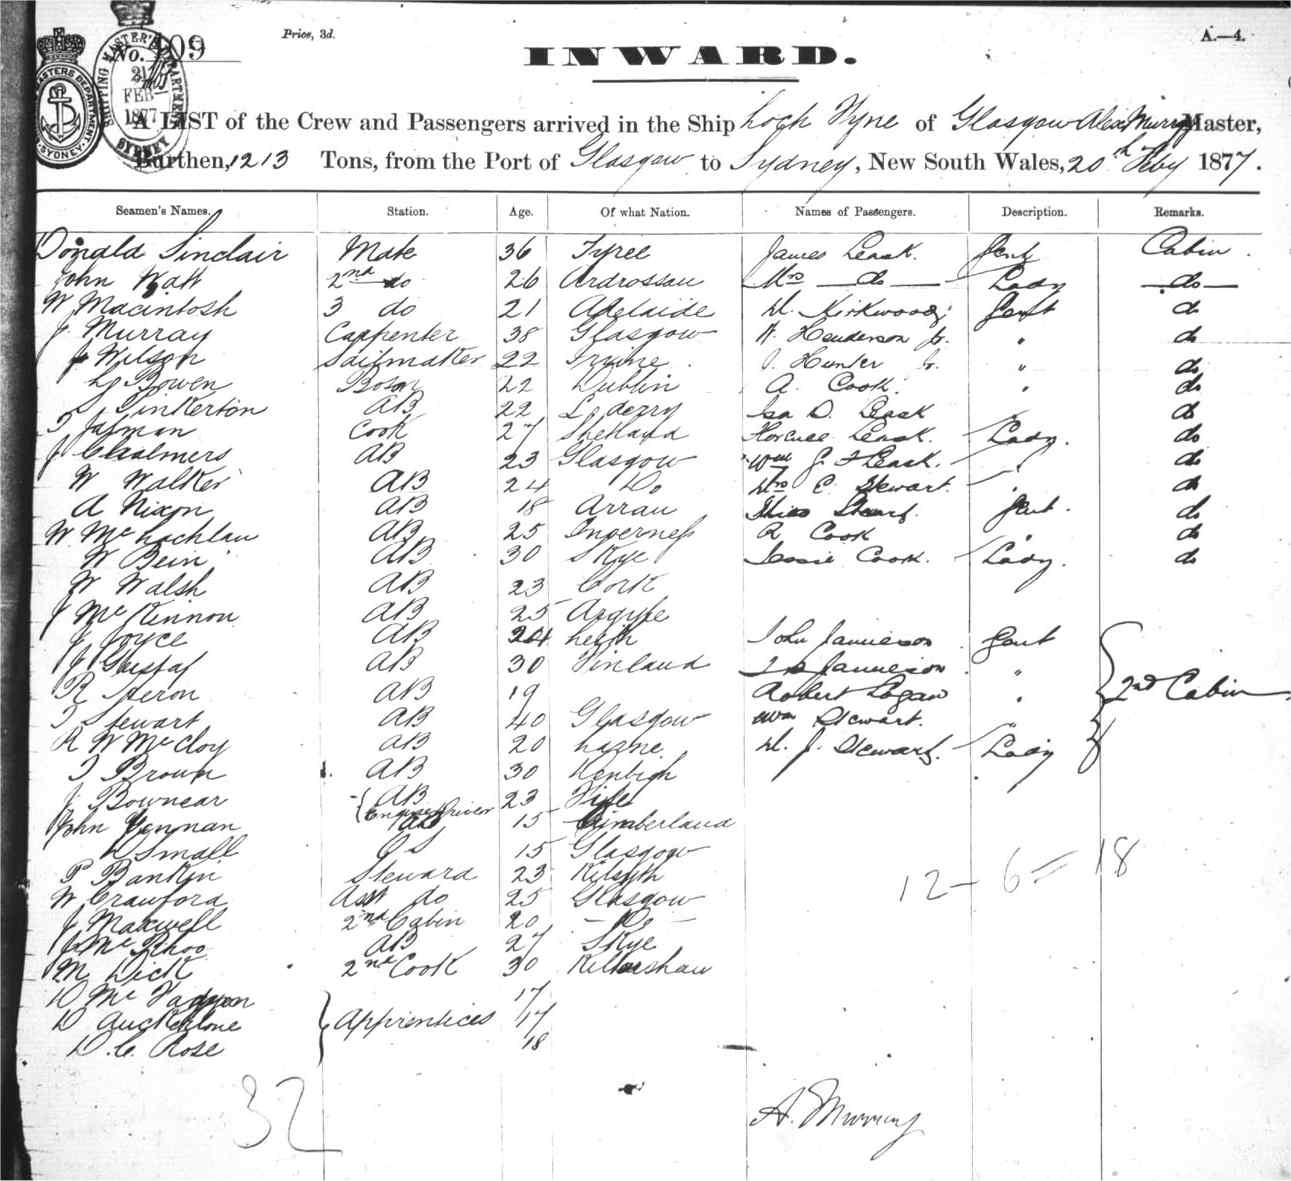 Price, 3d.
A.—4.
No. 109
INWARD.
SHIPPING MASTER'S DEPARTMENT 21 FEB 1877 SYDNEY
A LIST of the Crew and Passengers arrived in the Ship Loch Fyne of Glasgow Alex Murray Master,
Burthen, 1213 Tons, from the Port of Glasgow to Sydney, New South Wales, 20th Feby 1877.
Seamen's Names. Station. Age. Of what Nation. Names of Passengers. Description. Remarks.
Donald Sinclair Mate 36 Tyree James Leask Gent Cabin
John Watt 2nd do 26 Ardrossan Mrs do Lady do
W Macintosh 3 do 21 Adelaide Kirkwood Gent do
J Murray Carpenter 38 Glasgow Henderson Jr. " do
J Wilson Sailmaker 22 Irvine J. Hunter Jr. " do
Bowen Bosn 22 Dublin A. Cook " do
Pinkerton AB 22 Lo derry D. Leask do
Jasman Cook 27 Shetland Leask. Lady. do
J Chalmers AB 23 Glasgow Wm J Leask. " do
W Walker AB 24 Do Mrs C. Stewart. " do
A Nixon AB 18 Arran Miss Gent. do
W. McLachlan AB 25 Inverness R Cook " do
W Bein AB 30 Skye Jessie Cook. Lady. do
W Walsh AB 23 Cork
J McKinnon AB 25 Argyle
J Joyce AB 24 Leith John Jamieson Gent
J Gustaf AB 30 Finland Jamieson "
R Heron AB 19 Robert Logan " 2nd Cabin
T Stewart AB 40 Glasgow Wm Stewart.
R W McCloy AB 20 Larne J. Stewart. Lady
T Brown AB 30 Denbigh
J. Bownear AB Engine Driver 23 Fife
John Penman 15 Cumberland
D Small OS 15 Glasgow
P Bankin Steward 23 Kilsyth
W Crawford Asst do 25 Glasgow
J Maxwell 2nd Cabin 20 Do
J McPhee AB 27 Skye
M Dick 2nd Cook 30
D McFadyen 17
D Auchterlonie Apprentices 17
D. C. Rose 18
12 - 6 = 18
32
A. Murray